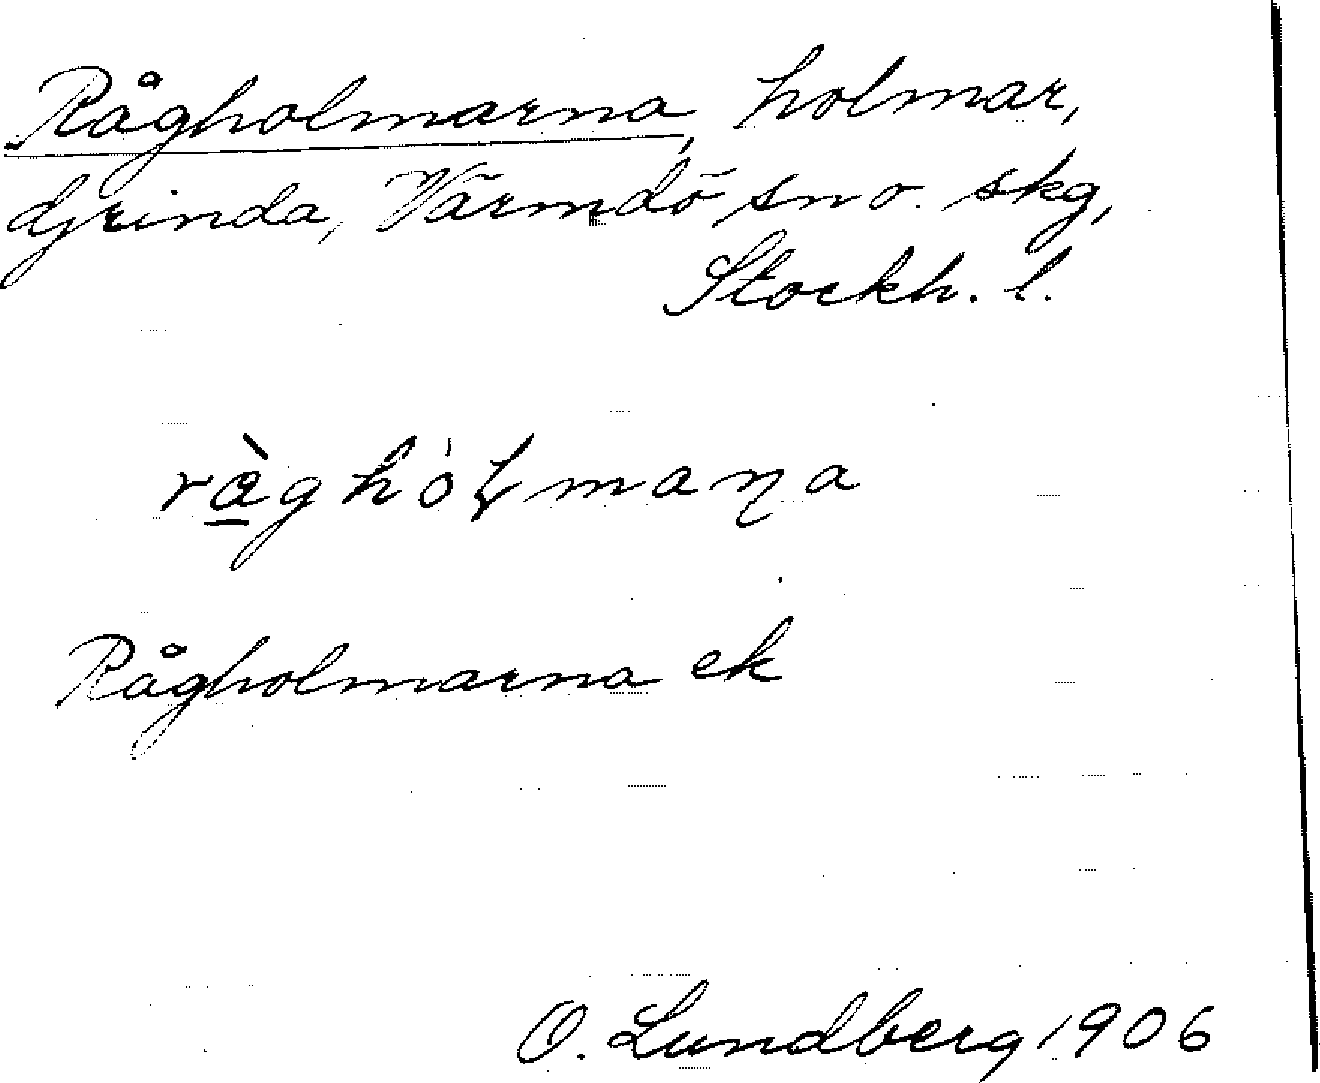 Rågholmarna, holmar,
djrinda, Värmdö sno. skg,
Stockh. l.
ràghólmaṇa
Rågholmarna ek
O. Lundberg 1906